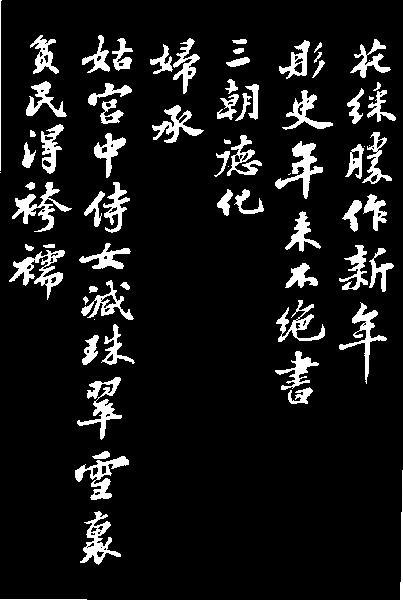 花綵勝作新年
彤史年来不絶書
三朝德化
婦承
姑宮中侍女減珠翠雪裏
貧民得袴襦